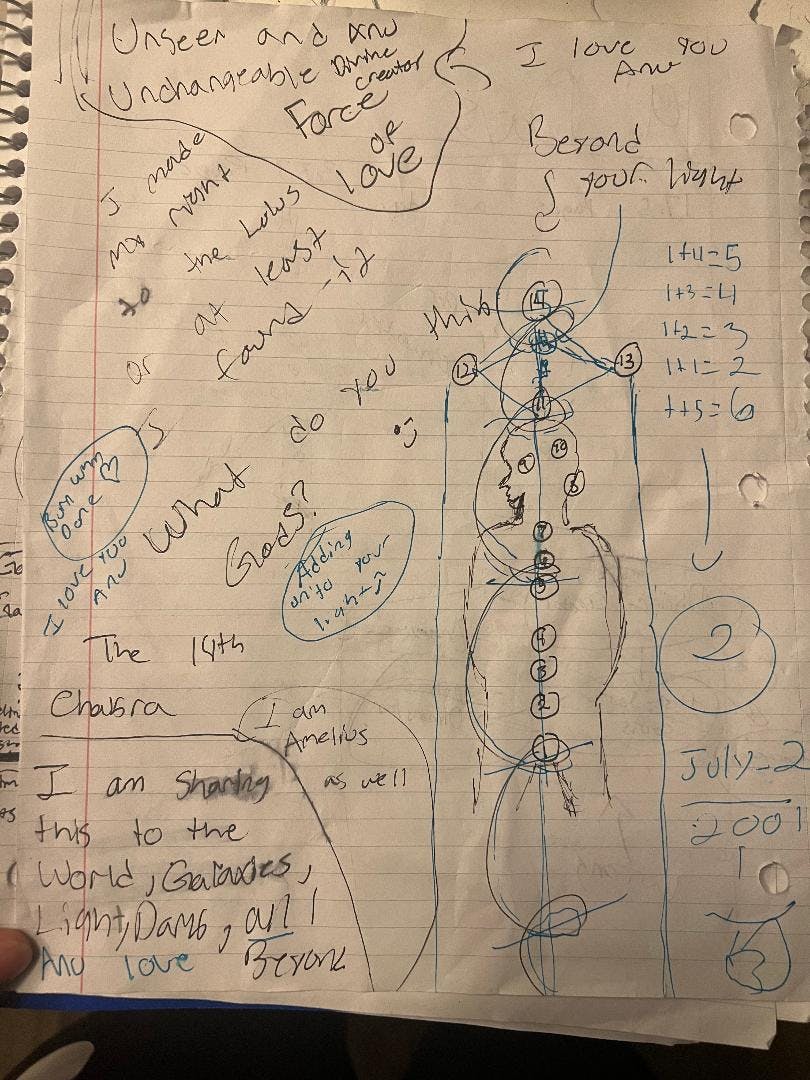 Unseen and Anu
Unchangeable Divine
creator
Force
OF
love
I love you
Anu
Beyond
your light
I made
my right
to the Lotus
or at least
found it
think
What do you
Gods?
I love you
Anu
Adding
unto your
light
The 14th
Chakra
I am
Amelius
as well
I am Sharing
this to the
World, Galaxies,
Light, Dark, all!
Anu love Beyond
14
12
13
11
9
10
8
7
6
5
4
3
2
1
1+4=5
1+3=4
1+2=3
1+1=2
1+5=6
2
July-2
2001